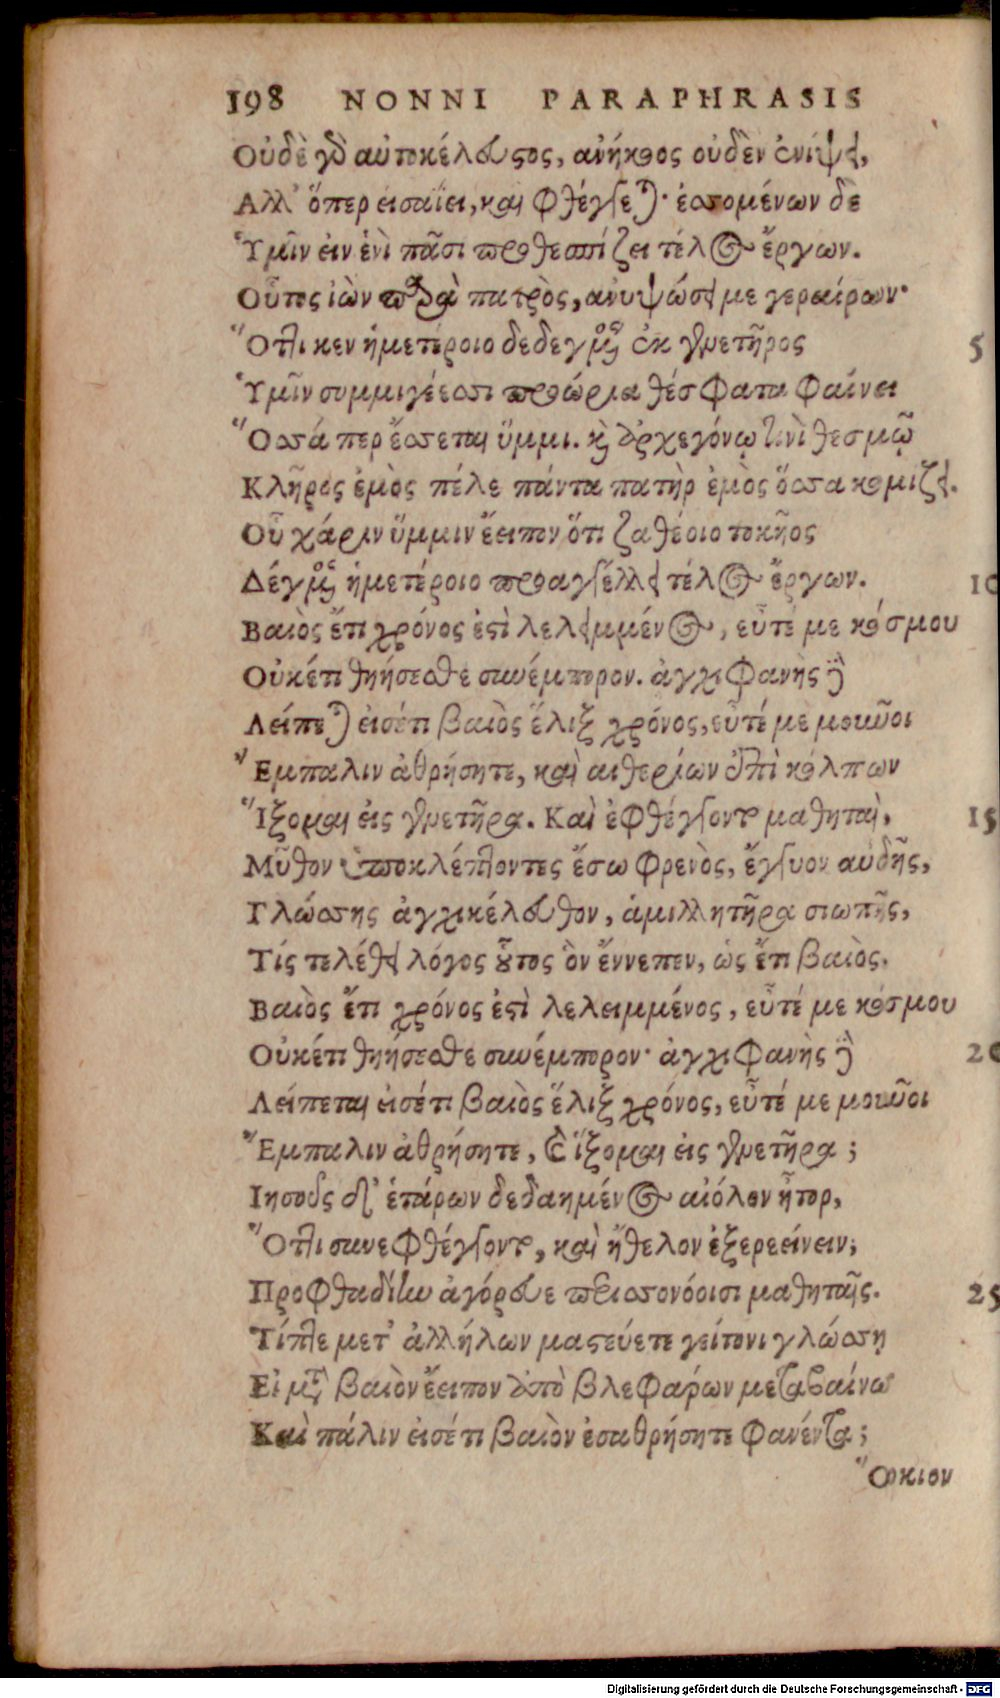 198 NONNI PARAPHRASIS
Οὐδὲ γὰρ αὐτοκέλευστος, ἀνήκοος οὐδὲν ἐνίψει,
Ἀλλ' ὅπερ εἰσαΐει, καὶ φθέγγεται· ἐσσομένων δὲ
Ὑμῖν εἰν ἑνὶ πᾶσι προθεσπίζει τέλος ἔργων.
Οὗτος ἰὼν παρὰ πατρὸς, ἀνυψώσει με γεραίρων·
Ὅττι κεν ἡμετέροιο δεδεγμένος ἐκ γενετῆρος 5
Ὑμῖν συμμιγέεσσι προώρια θέσφατα φαίνει
Ὅσσά περ ἔσσεται ὔμμι. καὶ ἀρχεγόνῳ τινὶ θεσμῷ
Κλῆρος ἐμὸς πέλε πάντα πατὴρ ἐμὸς ὅσσα κομίζει.
Οὗ χάριν ὔμμιν ἔειπον ὅτι ζαθέοιο τοκῆος
Δέγμενος ἡμετέροιο προαγγέλλει τέλος ἔργων. 10
Βαιὸς ἔτι χρόνος ἐστὶ λελειμμένος, εὖτέ με κόσμου
Οὐκέτι θηήσεσθε συνέμπορον. ἀγχιφανὴς γὰρ
Λείπεται εἰσέτι βαιὸς ἕλιξ χρόνος, εὖτέ με μοῦνοι
Ἔμπαλιν ἀθρήσητε, καὶ αἰθερίων ἐπὶ κόλπων
Ἵξομαι εἰς γενετῆρα. Καὶ ἐφθέγγοντο μαθηταὶ, 15
Μῦθον ὑποκλέπτοντες ἔσω φρενὸς, ἔγγυον αὐδῆς,
Γλώσσης ἀγχικέλευθον, ἁμιλλητῆρα σιωπῆς,
Τίς τελέθει λόγος οὗτος ὃν ἔννεπεν, ὡς ἔτι βαιὸς.
Βαιὸς ἔτι χρόνος ἐστὶ λελειμμένος, εὖτέ με κόσμου
Οὐκέτι θηήσεσθε συνέμπορον· ἀγχιφανὴς γὰρ 20
Λείπεται εἰσέτι βαιὸς ἕλιξ χρόνος, εὖτέ με μοῦνοι
Ἔμπαλιν ἀθρήσητε, καὶ ἵξομαι εἰς γενετῆρα;
Ιησοῦς δ' ἑτάρων δεδαημένος αἰόλον ἦτορ,
Ὅττι συνεφθέγγοντο, καὶ ἤθελον ἐξερεείνειν;
Προφθαδίην ἀγόρευε περισσονόοισι μαθηταῖς. 25
Τίπτε μετ' ἀλλήλων μαστεύετε γείτονι γλώσσῃ
Εἰ μετὰ βαιὸν ἔειπον ἀπὸ βλεφάρων μεταβαίνω
Καὶ πάλιν εἰσέτι βαιὸν ἐσαθρήσητε φανέντα;
Ὅρκιον
Digitalisierung gefördert durch die Deutsche Forschungsgemeinschaft - DFG